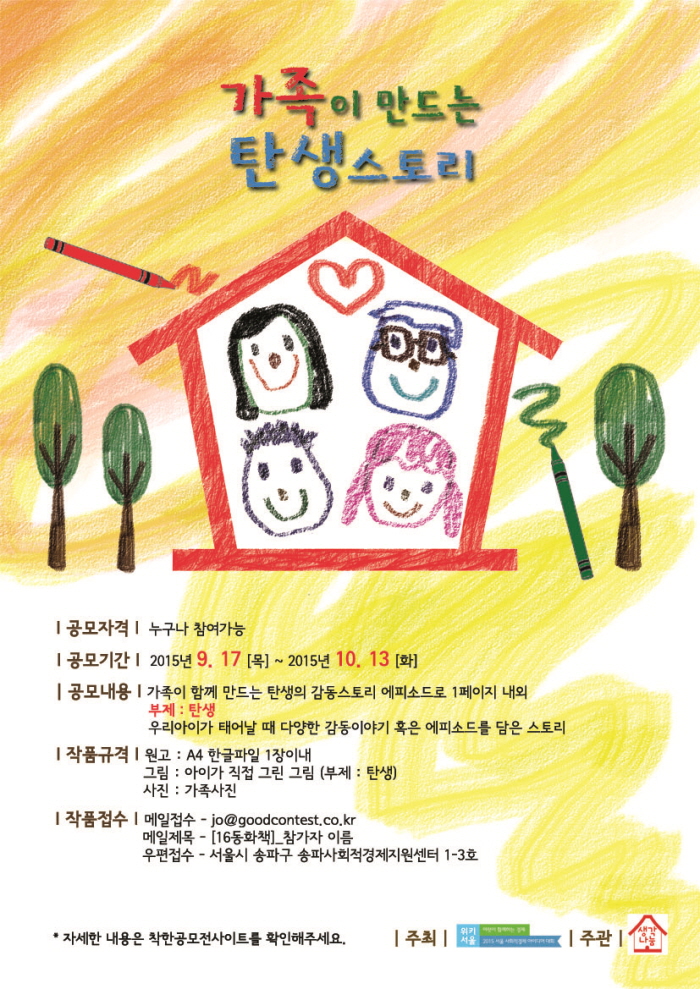 가족이 만드는
탄생스토리
| 공모자격 | 누구나 참여가능
| 공모기간 | 2015년 9. 17 [목] ~ 2015년 10. 13 [화]
| 공모내용 | 가족이 함께 만드는 탄생의 감동스토리 에피소드로 1페이지 내외
부제 : 탄생
우리아이가 태어날 때 다양한 감동이야기 혹은 에피소드를 담은 스토리
| 작품규격 | 원고 : A4 한글파일 1장이내
그림 : 아이가 직접 그린 그림 (부제 : 탄생)
사진 : 가족사진
| 작품접수 | 메일접수 - jo@goodcontest.co.kr
메일제목 - [16동화책]_참가자 이름
우편접수 - 서울시 송파구 송파사회적경제지원센터 1-3호
* 자세한 내용은 착한공모전사이트를 확인해주세요.
| 주최 | 위키서울 2015 서울 사회적경제 아이디어 대회 | 주관 | 생각나눔